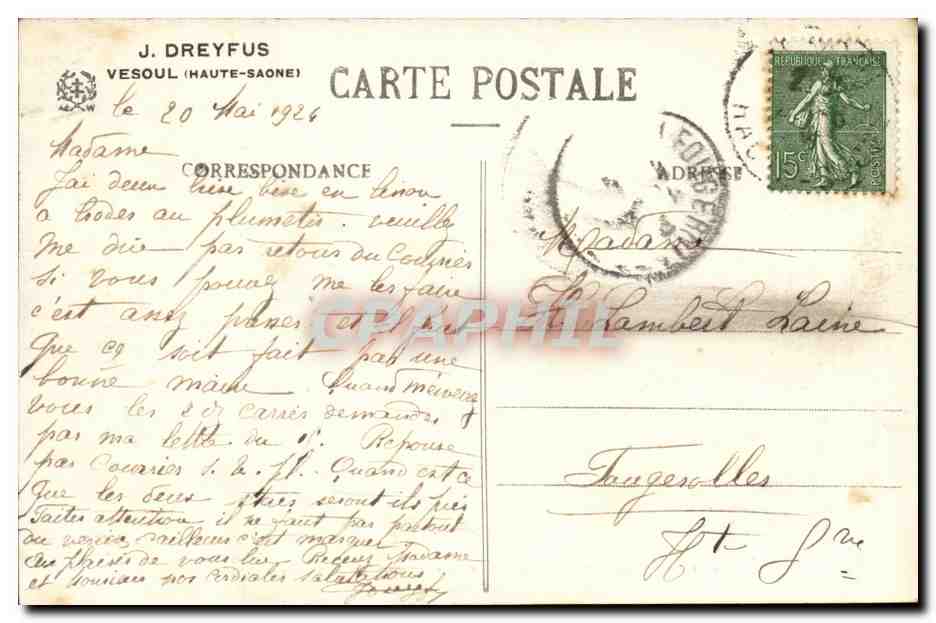 J. DREYFUS
VESOUL (HAUTE-SAONE)
CARTE POSTALE
CORRESPONDANCE
ADRESSE
REPUBLIQUE FRANÇAISE
15c
POSTES
FOUGEROLLES
CPAPHIL
le 20 Mai 1924
Madame
J'ai deux bise en linon
a brodes au plumetis. veuillez
me dire par retour du Courrier
si vous pouvez me les faire
c'est assez et il faut
que ça soit fait par une
bonne main. Quand
vous les 2 carrés demandés
par ma lettre du Réponse
par Courrier S. V. Pl. Quand est ce
que les deux seront ils
Faites attention il ne faut pas partout
ou c'est marqué
au plaisir de vous lire Recevez Madame
et nos cordiales salutations
Madame
Lambert Laine
Fougerolles
Hte Sne